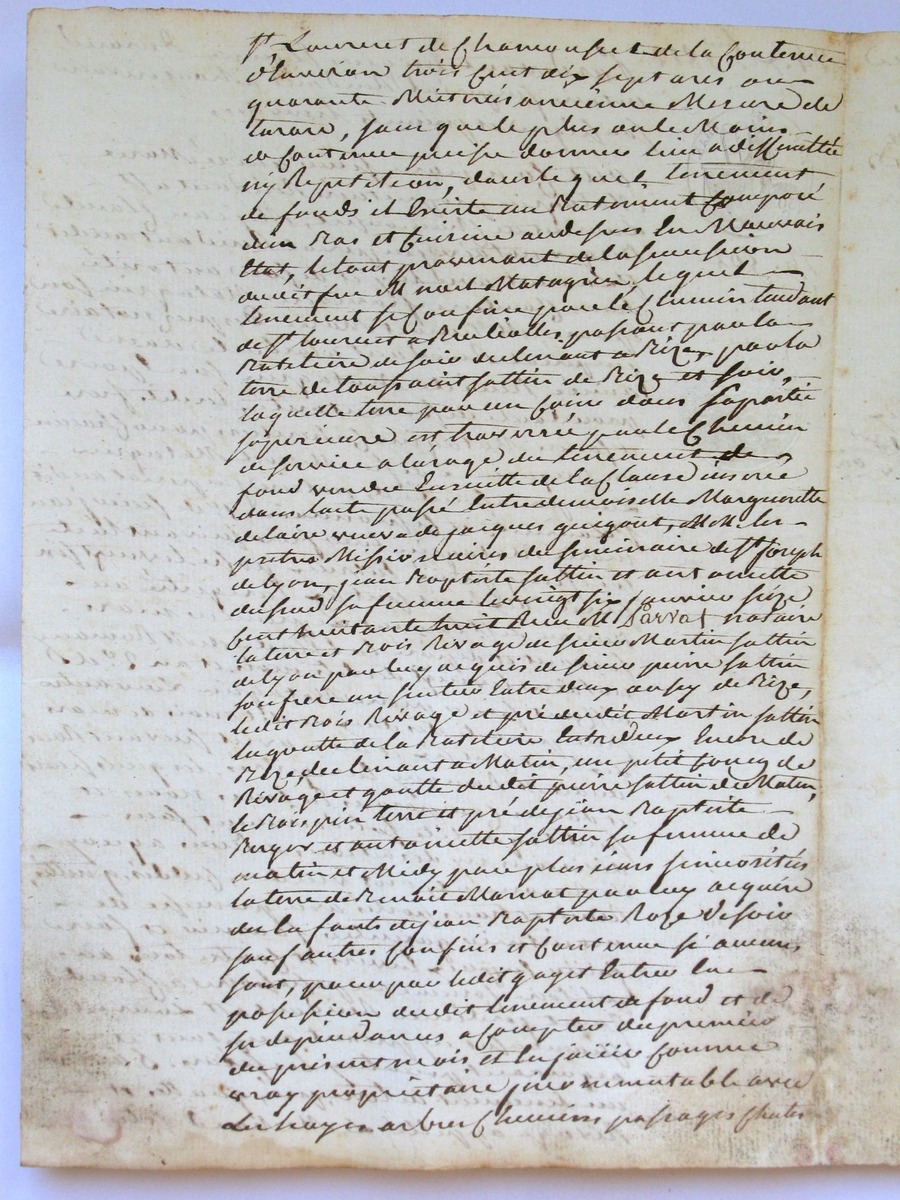 st Laurent de Chamousset de la Contenue
d'Environ trois Cent dix sept ares ou
quarante Mètrées ancienne Mesure de
tarare, sans que le plus ou le Moins
de Contenue precise donne lieu a difficultée
ny Repetition, dans lequel tenement
de fonds il Existe un Batiment Composé
d'un Bas et Cuisine au dessus En Mauvais
Etat, le tout provenant de la succession
dudit feu Matagrin, lequel
tenement se Confine par le Chemin tendant
de st Laurent a passant par la
Rateliere de soir declinant a Bize, par la
terre de toussaint sattin de Bize et soir,
laquelle terre par un Coins dans sa partie
superieure est traversée par le Chemin
de service a l'usage du tenement de
fond vendu Ensuitte de la Clause inserée
dans l'acte passé Entre demoiselle Margueritte
delaire veuve de jacques guigout, MM les
pretres Missionnaires du seminaire de st joseph
de lyon, jean Baptiste sattin et antoinette
sa femme le vingt six janvier seize
Cent huitante huit Reçu Me Parrat notaire
la terre et Bois Rivage de sieur Martin sattin
de lyon par luy acquis de sieur pierre sattin
son frere un sentier Entre deux aussy de Bize,
ledit Bois Rivage et pré dudit Martin sattin
la goutte de la Rateliere Entredeux Encore de
Bize, declinant a Matin, un petit de
Rivage et goutte dudit pierre sattin de Matin,
le Bois pin terre et pré de jean Baptiste
Berger et antoinette sattin sa femme de
matin et Midy par plusieurs sinuosités
la terre de Benoit Marnat par luy acquise
des Enfants de jean Baptiste Roze de soir
sauf autres Confins et Contenue si aucuns
sont, pour par ledit gayet Entrer En
possession dudit tenement de fond et de
ses dependances a Compter du premier
du present mois et En jouir Comme
vray proprietaire incommutable avec
les hayes arbres Chemins passages